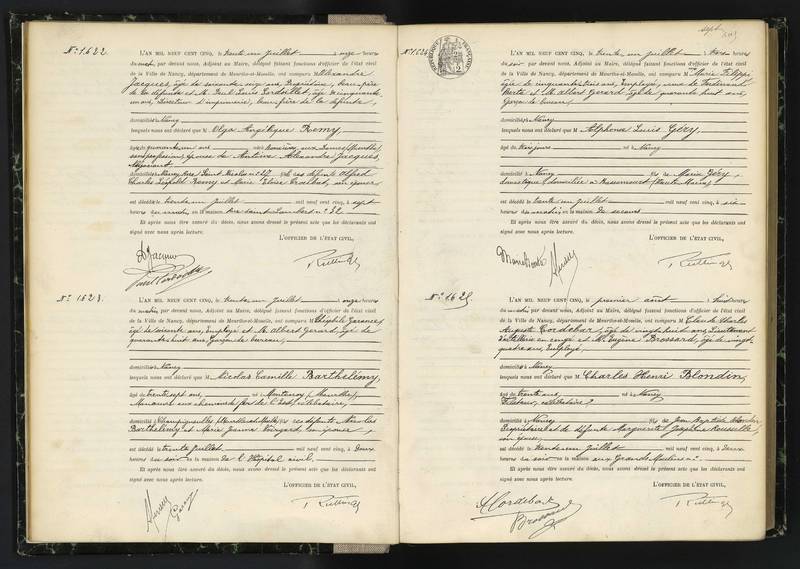 N° 1622.
L'AN MIL NEUF CENT CINQ, le trente un juillet à onze heures
du matin, par devant nous, Adjoint au Maire, délégué faisant fonctions d'officier de l'état civil
de la Ville de Nancy, département de Meurthe-et-Moselle, ont comparu M. Alexandre
Jacques, âgé de soixante
de la défunte et M. Paul Louis âgé de cinquante
un ans, Directeur d'imprimerie, beau-frère de la défunte,
domiciliés à Nancy
lesquels nous ont déclaré que M Olga Angélique Remy,
âgée de quarante un ans née
sans profession, épouse de Antoine Alexandre Jacques,
Négociant
domiciliée à Nancy, Rue Saint Nicolas n° 27 fille des défunts Alfred
Charles Léopold Remy et Marie
est décédée le trente un juillet mil neuf cent cinq, à sept
heures du matin, en la maison rue Saint Lambert n° 32
Et après nous être assuré du décès, nous avons dressé le présent acte que les déclarants ont
signé avec nous après lecture.
L'OFFICIER DE L'ÉTAT CIVIL,
N° 1623.
L'AN MIL NEUF CENT CINQ, le trente un juillet à onze heures
du matin, par devant nous, Adjoint au Maire, délégué faisant fonctions d'officier de l'état civil
de la Ville de Nancy, département de Meurthe-et-Moselle, ont comparu M.
âgé de soixante ans, Employé et M. Albert Gerard âgé de
quarante huit ans, Garçon de bureau,
domiciliés à Nancy
lesquels nous ont déclaré que M Nicolas Camille Barthélémy,
âgé de trente sept ans, né à (Meurthe)
Manœuvre aux chemins de fer de l'Est, célibataire,
domicilié à Champigneulles (Meurthe et Moselle) fils des défunts Nicolas
Barthélémy et Marie Jeanne son épouse,
est décédé le trente juillet mil neuf cent cinq, à deux
heures du soir en la maison de l'Hôpital civil.
Et après nous être assuré du décès, nous avons dressé le présent acte que les déclarants ont
signé avec nous après lecture.
L'OFFICIER DE L'ÉTAT CIVIL,
N° 1624
L'AN MIL NEUF CENT CINQ, le trente un juillet à trois heures
du soir par devant nous, Adjoint au Maire, délégué faisant fonctions d'officier de l'état civil
de la Ville de Nancy, département de Meurthe-et-Moselle, ont comparu M Marie
âgée de cinquante ans, Employée, et M. Albert Gerard âgé de quarante huit ans,
Garçon de bureau,
domiciliés à Nancy
lesquels nous ont déclaré que M Alphonse Louis Géry,
âgé de six jours né à Nancy
domicilié à Nancy fils de Marie Géry,
domestique (domiciliée à
est décédé le trente un juillet mil neuf cent cinq, à six
heures du matin en la maison de secours
Et après nous être assuré du décès, nous avons dressé le présent acte que les déclarants ont
signé avec nous après lecture.
L'OFFICIER DE L'ÉTAT CIVIL,
N° 1625.
L'AN MIL NEUF CENT CINQ, le premier août à huit heures
du matin par devant nous, Adjoint au Maire, délégué faisant fonctions d'officier de l'état civil
de la Ville de Nancy, département de Meurthe-et-Moselle, ont comparu M. Charles
Auguste Cordebar, âgé de vingt huit ans, Lieutenant
d'artillerie en congé et M. Eugène Brossard, âgé de vingt
quatre ans, Employé,
domiciliés à Nancy
lesquels nous ont déclaré que M Charles Henri Blondin,
âgé de trente ans, né à Nancy
célibataire
domicilié à Nancy fils de Jean Baptiste Blondin
Propriétaire et de défunte Marguerite Joséphine
son épouse
est décédé le trente un juillet mil neuf cent cinq, à deux
heures du soir en la maison aux Grands Moulins
Et après nous être assuré du décès, nous avons dressé le présent acte que les déclarants ont
signé avec nous après lecture.
L'OFFICIER DE L'ÉTAT CIVIL,
A Cordebar
Brossard